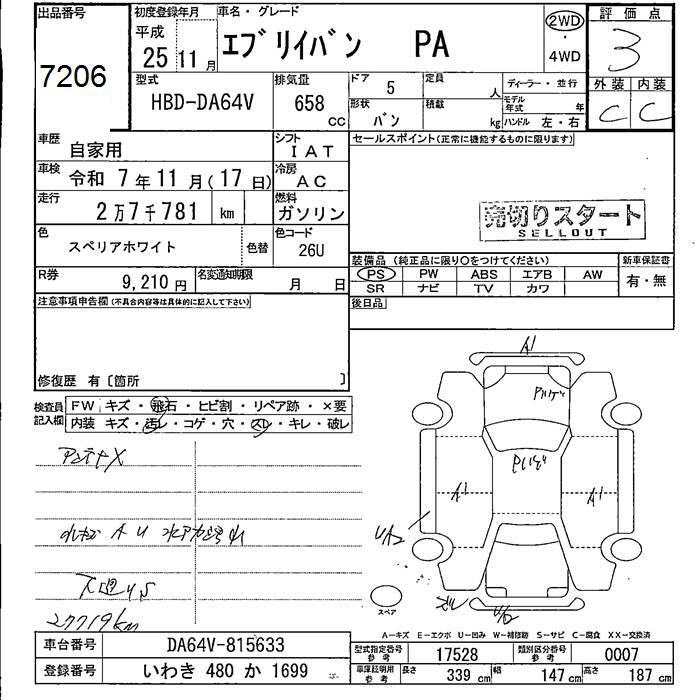 出品番号
7206
初度登録年月
平成
25 11月
車名・グレード
エブリイバン PA
2WD
・
4WD
評価点
3
外装 内装
C C
型式
HBD-DA64V
排気量
658
CC
ドア
5
定員
人
形状
バン
積載
kg
ディーラー・並行
モデル年式
年
ハンドル 左・右
車歴
自家用
シフト
IAT
車検
令和 7年11月(17日)
冷房
AC
走行
2万7千781 km
燃料
ガソリン
色
スペリアホワイト
色替
色コード
26U
R券
9,210円
名変通知期限
月 日
セールスポイント(正常に機能するものに限ります)
売切りスタート
SELLOUT
装備品(純正品に限り○をつけてください)
PS PW ABS エアB AW
SR ナビ TV カワ
新車保証書
有・無
後日品
注意事項申告欄(不具合内容等は具体的に記入して下さい)
修復歴 有〔箇所 〕
検査員記入欄
FW キズ・飛石・ヒビ割・リペア跡・×要
内装 キズ・汚レ・コゲ・穴・スレ・キレ・破レ
アンテナX
27719km
A1
A1
A1
UA2
U2
スペア
A-キズ E-エクボ U-凹み W-補修跡 S-サビ C-腐食 XX-交換済
車台番号
DA64V-815633
登録番号
いわき 480 か 1699
型式指定番号
参考
17528
類別区分番号
参考
0007
車庫証明記入
参考
長さ
339 cm
幅
147 cm
高さ
187 cm